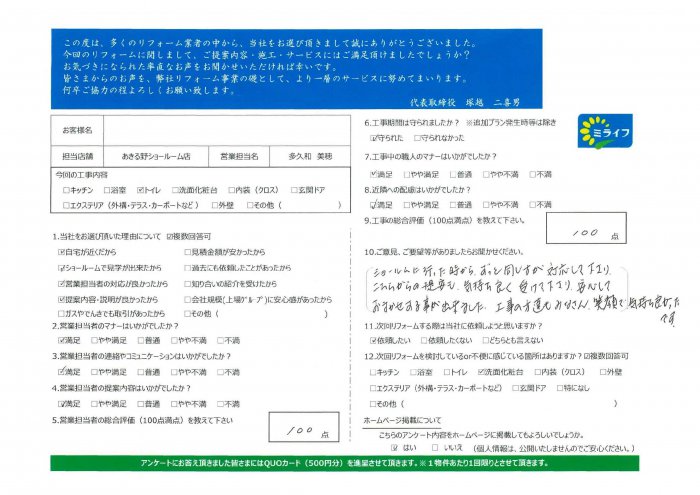 この度は、多くのリフォーム業者の中から、当社をお選び頂きまして誠にありがとうございました。
今回のリフォームに関しまして、ご提案内容・施工・サービスにはご満足頂けましたでしょうか？
お気づきになられた率直なお声をお聞かせいただければ幸いです。
皆さまからのお声を、弊社リフォーム事業の礎として、より一層のサービスに努めてまいります。
何卒ご協力の程よろしくお願い致します。
代表取締役　塚越　二喜男
ミライフ
お客様名
担当店舗　あきる野ショールーム店　営業担当名　多久和 美穂
今回の工事内容
□キッチン　□浴室　☑トイレ　□洗面化粧台　□内装（クロス）　□玄関ドア
□エクステリア（外構・テラス・カーポートなど）　□外壁　□その他（　　　）
1.当社をお選び頂いた理由について　☑複数回答可
☑自宅が近くだから　□見積金額が安かったから
☑ショールームで見学が出来たから　□過去にも依頼したことがあったから
☑営業担当者の対応が良かったから　□知り合いの紹介を受けたから
☑提案内容・説明が良かったから　□会社規模（上場グループ）に安心感があったから
□ガスやでんきでも取引があったから　□その他（　　　）
2.営業担当者のマナーはいかがでしたか？
☑満足　□やや満足　□普通　□やや不満　□不満
3.営業担当者の連絡やコミュニケーションはいかがでしたか？
☑満足　□やや満足　□普通　□やや不満　□不満
4.営業担当者の提案内容はいかがでしたか？
☑満足　□やや満足　□普通　□やや不満　□不満
5.営業担当者の総合評価（100点満点）を教えて下さい
100 点
6.工事期間は守られましたか？　※追加プラン発生時等は除き
☑守られた　□守られなかった
7.工事中の職人のマナーはいかがでしたか？
☑満足　□やや満足　□普通　□やや不満　□不満
8.近隣への配慮はいかがでしたか？
☑満足　□やや満足　□普通　□やや不満　□不満
9.工事の総合評価（100点満点）を教えて下さい。
100 点
10.ご意見、ご要望等がありましたらお聞かせください。
ショールームに行った時から、ずっと同じ方が対応して下さり
こちらからの提案も、気持ち良く受けて下さり、安心して
おまかせする事が出来ました。工事の方達もみなさん、笑顔で気持ち良かった
です
11.次回リフォームする際は当社に依頼しようと思いますか？
☑依頼したい　□依頼したくない　□どちらとも言えない
12.次回リフォームを検討しているor不便に感じている箇所はありますか？☑複数回答可
□キッチン　□浴室　□トイレ　☑洗面化粧台　□内装（クロス）　□外壁
□エクステリア（外構・テラス・カーポートなど）　□玄関ドア　□特になし
□その他（　　　）
ホームページ掲載について
こちらのアンケート内容をホームページに掲載してもよろしいでしょうか。
☑ はい　□ いいえ　（個人情報は、公開いたしませんのでご安心ください。）
アンケートにお答え頂きました皆さまにはQUOカード（500円分）を進呈させて頂きます。※１物件あたり1回限りとさせて頂きます。